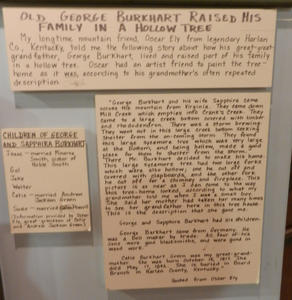 OLD GEORGE BURKHART RAISED HIS
FAMILY IN A HOLLOW TREE
My longtime mountain friend, Oscar Ely from legendary Harlan
Co., Kentucky, told me the following story about how his great-great-
grandfather, George Burkhart, lived and raised part of his family
in a hollow tree. Oscar had an artist friend to paint the tree-
home as it was, according to his grandmother's often repeated
description.
CHILDREN OF GEORGE
AND SAPPHIRA BURKHART
Isaac
Sally
Walter
Celia married Andrew
Jackson Green
Susie married
(Information provided by Oscar
Ely, great-grandson of Celia
and Andrew Jackson Green)
"George Burkhart and his wife Sapphira came
across the mountain from Virginia. They came down
Mill Creek which empties into Crank's Creek. They
came to a large creek bottom covered with timber
and rhododendron. There was a storm brewing.
They went out in this large creek bottom seeking
shelter from the on-coming storm. They found
this large sycamore tree which was very large
at the bottom, and being hollow, made a good
place for them to shelter from the storm.
There Mr. Burkhart decided to make his home.
This large sycamore tree had two large forks
which were also hollow; one he cut off and
covered with clapboards, and the other fork
he cut off for a chimney and fireplace. This
picture is as near as I can come to the way
this tree-home looked, according to what my
grandmother told me when I was a small boy.
She said her mother had taken her many times
to see her grandfather here in this tree home.
This is the description that she gave me.
George and Sapphira Burkhart had six children.
George Burkhart came from Germany. He
was a Bell maker by trade. All four of his
sons were good blacksmiths, and were good in
wood work.
Celia Burkhart Green was my great grand-
mother. She was born October 15, 1815. She
died May 17, 1916. She is buried on Board
Branch in Harlan County, Kentucky."
Quoted from Oscar Ely